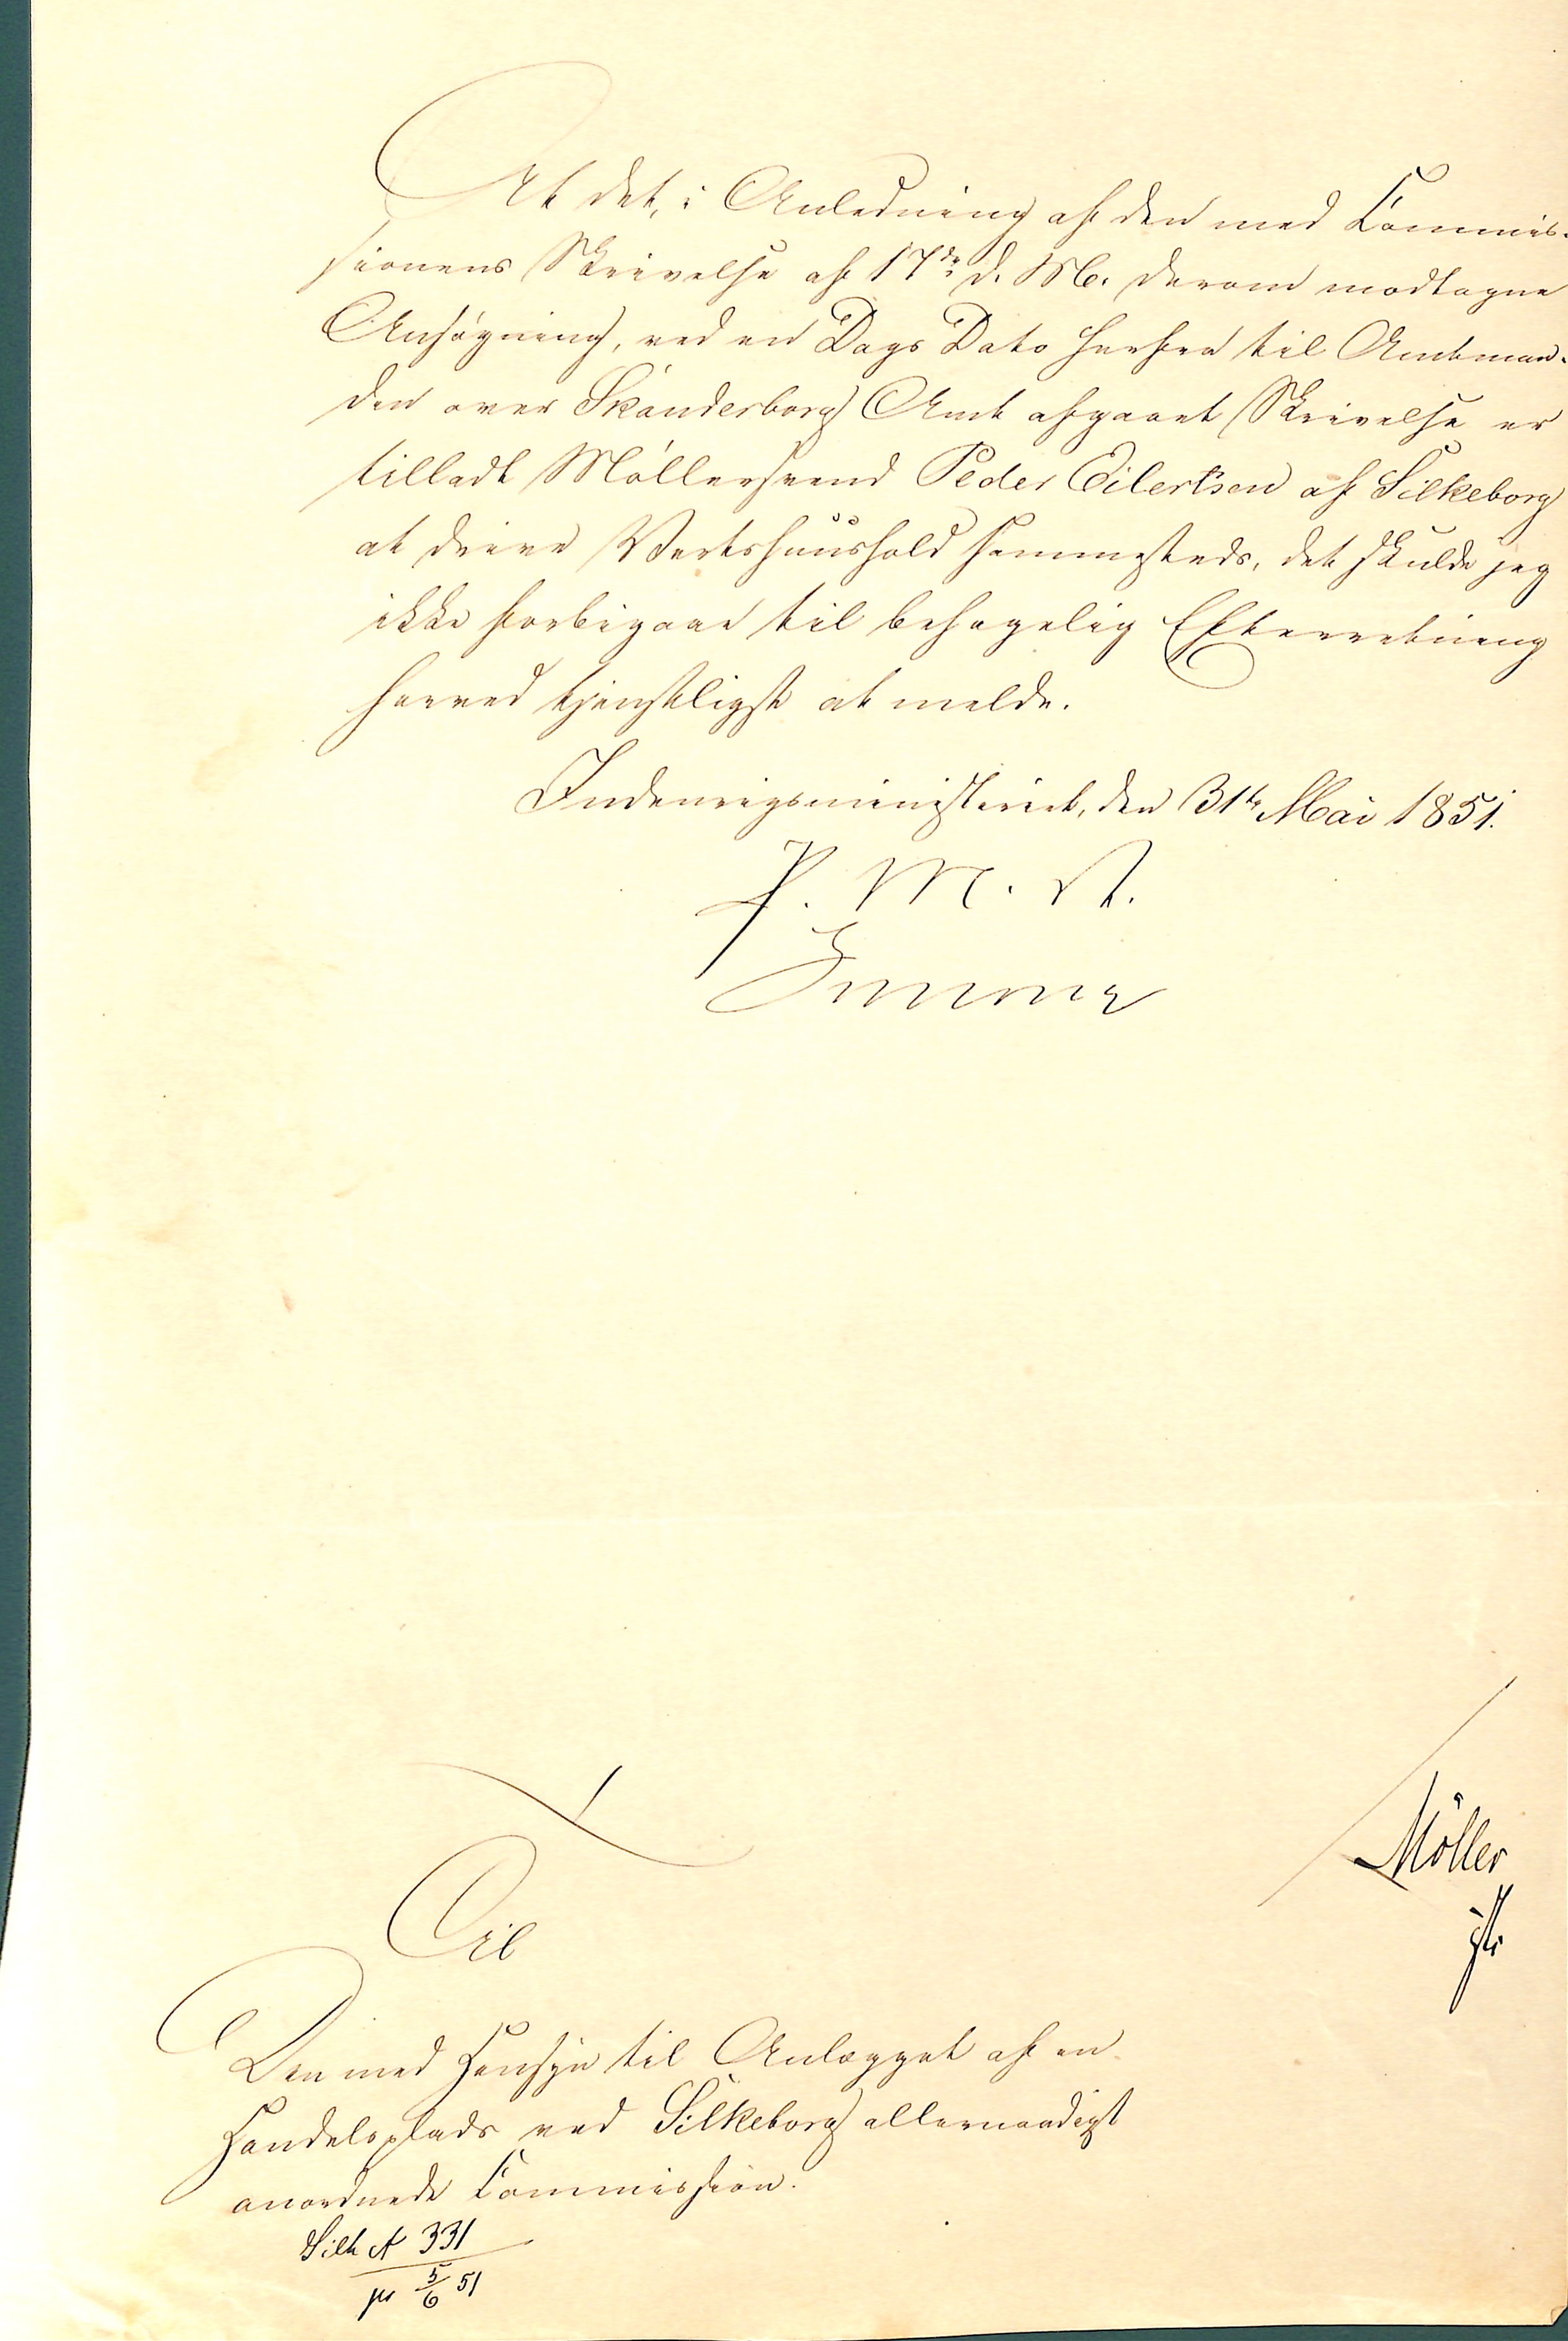 At det, i Anledning af den med Commis-
sionens Skrivelse af 17de d. M. derom modtagne
Ansøgning, ved en Dags Dato herfra til Amtman-
den over Skanderborg Amt afgaaet Skrivelse er
tilladt Møllersvend Peder Eilertsen af Silkeborg
at drive Vertshuushold sammesteds, det skulde jeg
ikke forbigaae til behagelig Efterretning
herved tjenstligst at melde.
Indenrigsministeriet, den 31te Mai 1851.
P. M. V.
Til
Den med Hensyn til Anlægget af en
Handelsplads ved Silkeborg allernaadigst
anordnede Commission.
Møller
Silk A 331
5/6 51